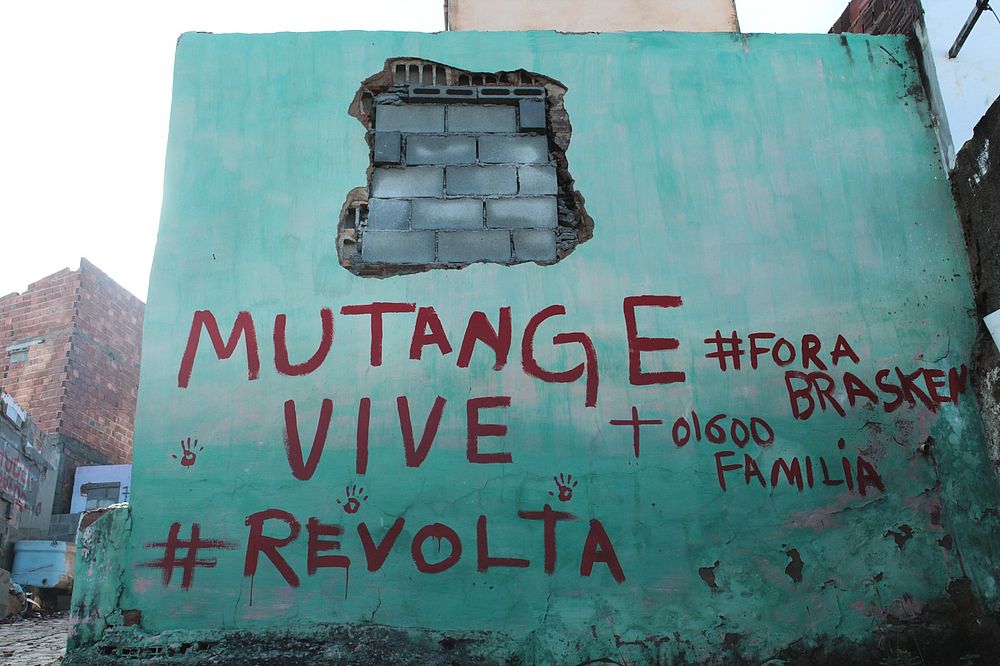 MUTANGE
VIVE
#REVOLTA
#FORA
BRASKEM
+ 01600
FAMILIA